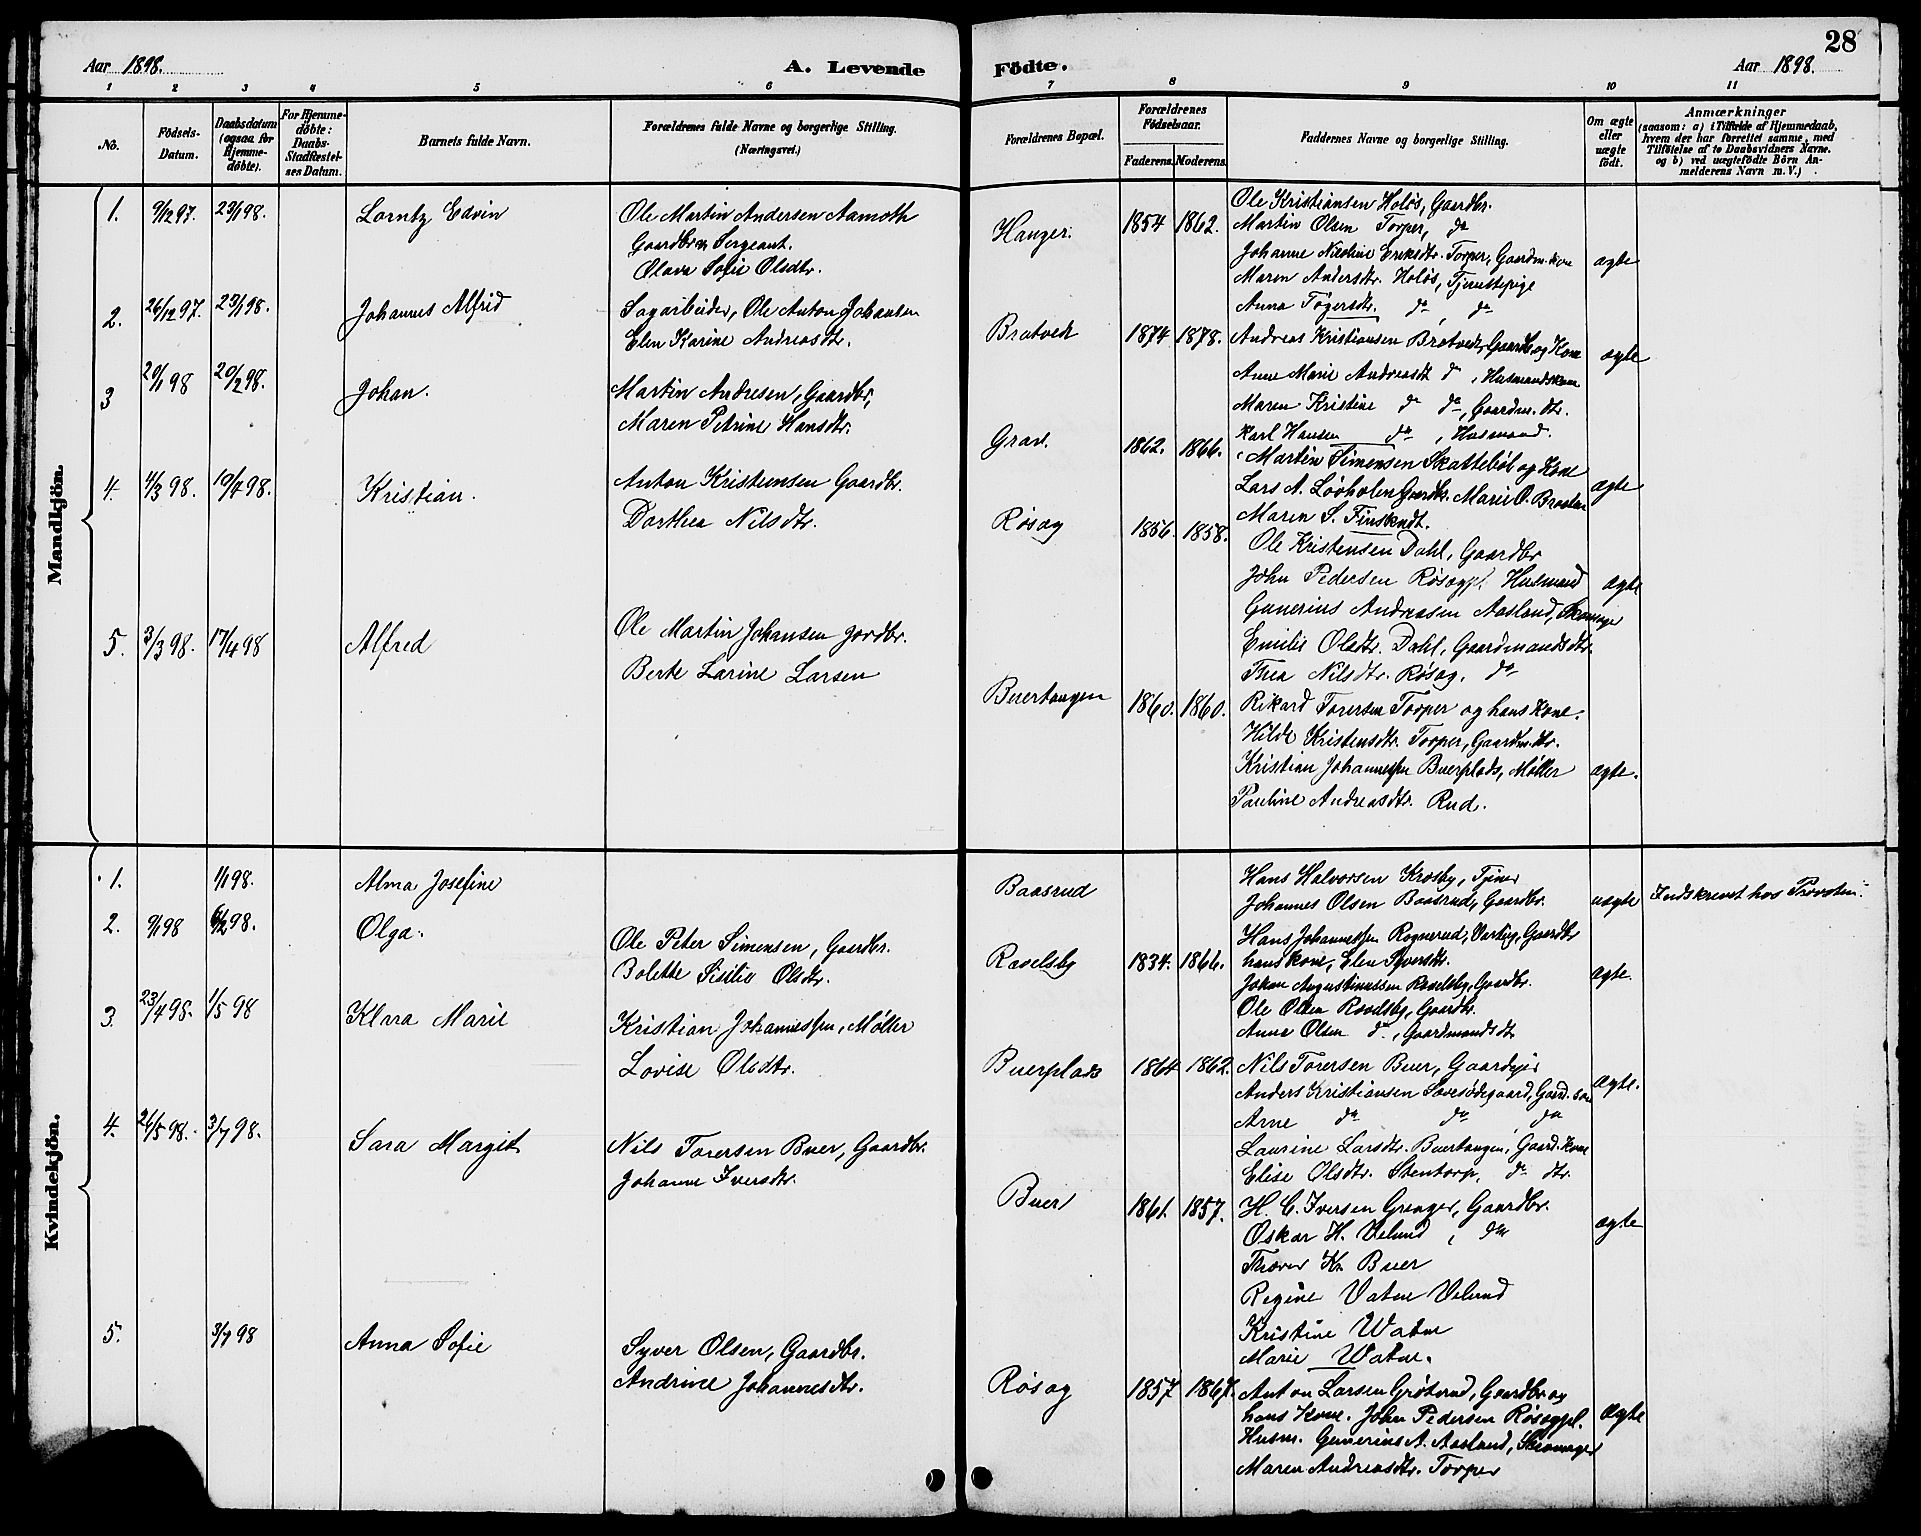 28
Aar 1898.
A. Levende Födte.
Aar 1898.
1 2 3 4 5 6 7 8 9 10 11
No.
Födsels-Datum.
Daabsdatum (ogsaa for Hjemmedöbte).
For Hjemmedöbte: Daabs-Stadfæstelses Datum.
Barnets fulde Navn.
Forældrenes fulde Navne og borgerlige Stilling.
(Næringsvei.)
Forældrenes Bopæl.
Forældrenes Födselsaar.
Faderens. Moderens.
Faddernes Navne og borgerlige Stilling.
Om ægte eller uægte födt.
Anmærkninger
(saasom: a) i Tilfælde af Hjemmedaab, hvem der har forrettet samme, med Tilföielse af to Daabsvidners Navne, og b) ved uægtefödte Börn Anmelderens Navn m. V.)
Mandkjön.
1. 9/12 97. 23/1 98. Lorntz Edvin
Ole Martin Andersen Aamoth
Gaardbr. Sergeant.
Olava Sofie Olsdtr.
Hanger. 1854 1862.
Ole Kristiansen Holøs, Gaardbr.
Martin Olsen Torper, do
Johanne Nicoline Eriksdtr. Torper, Gaardm. kone
Maren Andersdtr. Holøs, Tjenestepige
Anna Tøgersdtr. do, do
ægte
2. 26/12 97. 23/1 98. Johannes Alfred
Sagarbeider, Ole Anton Johansen
Elen Karine Andreasdtr.
Bratvedt 1874 1878.
Andreas Kristiansen Bratvedt, Gaardb. og Kone
Anne Marie Andreasdt do, Husmandskone
Maren Kristine do do, Gaardm. dtr.
Karl Hansen do, Husmand.
ægte
3 20/1 98 20/2 98. Johan.
Martin Andresen, Gaardbr,
Maren Petrine Hansdtr.
Grav. 1862. 1866.
Martin Simensen Skattebøl og Kone
Lars A. Løvholen Gaardbr. Marie O. Braaten
Maren S. Finskudt.
ægte
4. 4/3 98. 10/4 98. Kristian.
Anton Kristensen Gaardbr.
Dorthea Nilsdtr.
Røsæg 1856. 1858.
Ole Kristensen Dahl, Gaardbr
John Pedersen Røsægpl. Husmand
Gunerius Andreasen Aasland, Skomager
Emilie Olsdtr. Dahl, Gaardmandsdtr.
Thea Nilsdtr. Røsæg, do
ægte
5. 3/3 98. 17/4 98 Alfred
Ole Martin Johansen Jordbr.
Berte Larine Larsen
Buertangen 1860. 1860.
Rikard Toresen Torper og hans Kone.
Hilda Kristensdtr. Torper, Gaardm. dtr.
Kristian Johannessen Buerplads, Møller
Pauline Andreasdtr. Rud.
ægte.
Kvindekjön.
1. 1/1 98. Alma Josefine
Baasrud
Hans Halvorsen Krosby, Tjener
Johannes Olsen Baasrud, Gaardbr.
uægte Indskrevet hos Provsten.
2. 9/1 98 6/2 98. Olga.
Ole Peter Simensen, Gaardbr.
Bolette Sicilie Olsdtr.
Ravelsby 1834. 1866.
Hans Johannessen Rognerud, Varteig, Gaardbr
hans kone, Elen Syversdtr.
Johan Augustinussen Ravelsby, Gaardbr.
Ole Olsen Ravelsby, Gaardbr.
Anne Olsen do, Gaardmandsdt
ægte.
3. 23/4 98. 1/5 98 Klara Marie
Kristian Johannessen, Møller
Lovise Olsdtr.
Buerplads 1864 1862.
Nils Toresen Buer, Gaardejer
Anders Kristiansen Sævesødegaard, Gaard. søn
Arne do do do
Laurine Larsdtr. Buertangen, Gaard. Kone
Elise Olsdtr. Stentorp, do dtr.
ægte.
4. 26/5 98. 3/7 98. Sara Margit
Nils Toresen Buer, Gaardbr.
Johanne Iversdtr.
Buer 1861. 1857.
H. C. Iversen Grenger, Gaardbr.
Oskar H. Velund, do
Thorer K. Buer
Regine Vatne Velund
Kristine Watne
Marie Watne.
ægte
5. 3/7 98 Anna Sofie
Syver Olsen, Gaardbr.
Andrine Johannesdtr.
Røsæg 1857 1867.
Anton Larsen Grøtvud, Gaardbr og
hans Kone. John Pedersen Røsægpl.
Husm. Gunerius A. Aasland, Skomager
Maren Andreasdtr. Torper
ægte